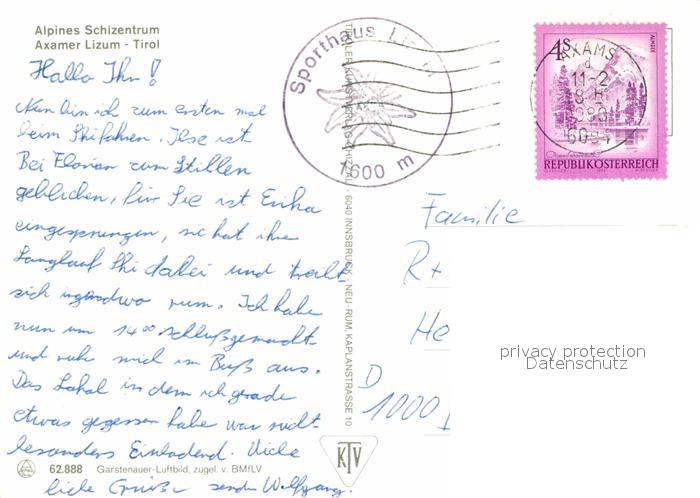 Alpines Schizentrum
Axamer Lizum - Tirol
Hallo Ihr!
Nun bin ich zum ersten mal
beim Skifahren. Ilse ist
Bei Florian zum Stillen
geblieben, für Sie ist Erika
eingesprungen, sie hat ihre
Langlauf Ski dabei und treibt
sich irgendwo rum. Ich habe
nun um 14⁰⁰ schluß gemacht
und ruhe mich im Buß aus.
Das Lokal in dem ich gerade
etwas gegessen habe war nicht
besonders Einladend. Viele
liebe Grüße senden Wolfgang.
62.888 Garstenauer-Luftbild, zugel. v. BMfLV
6040 INNSBRUCK - NEU-RUM, KAPLANSTRASSE 10
KTV
Sporthaus Lizum
1600 m
4S
ALMSEE
REPUBLIK ÖSTERREICH
AXAMS
d
11-2
6094
Familie
R+
He
D
1000
privacy protection
Datenschutz